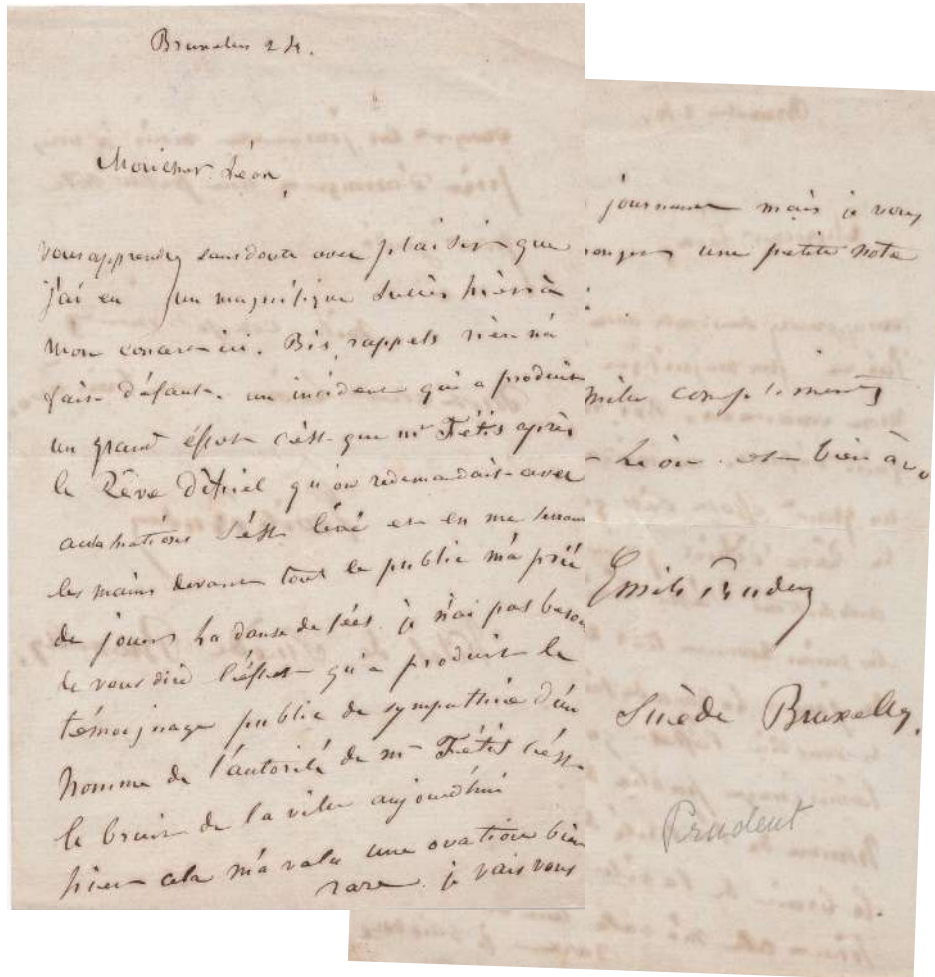 Bruxelles 24.
Mon cher Léon,
vous apprendrez sans doute avec plaisir que
j'ai eu un magnifique succès hièr à
mon concert ici. Bis, rappels rièn n'a
fait défaut. un incident qui a produit
un grand éffet c'ést que mr Fétis après
le Rêve d'Ariel qu'on redemandait avec
acclamations s'ést levé et en me serrant
les mains devant tout le public m'a prié
de jouer La danse des fées. je n'ai pas besoin
de vous dire l'éffet qu'a produit le
témoignage public de sympathie d'un
homme de l'autorité de mr Fétis c'ést
le bruit de la ville aujourd'hui
hier cela m'a valu une ovation bien
rare. je vais vous
journaux mais je vous
une petite note
mille compliments
Léon et bièn à vo
Emile Prudent
Suède Bruxelles.
Prudent